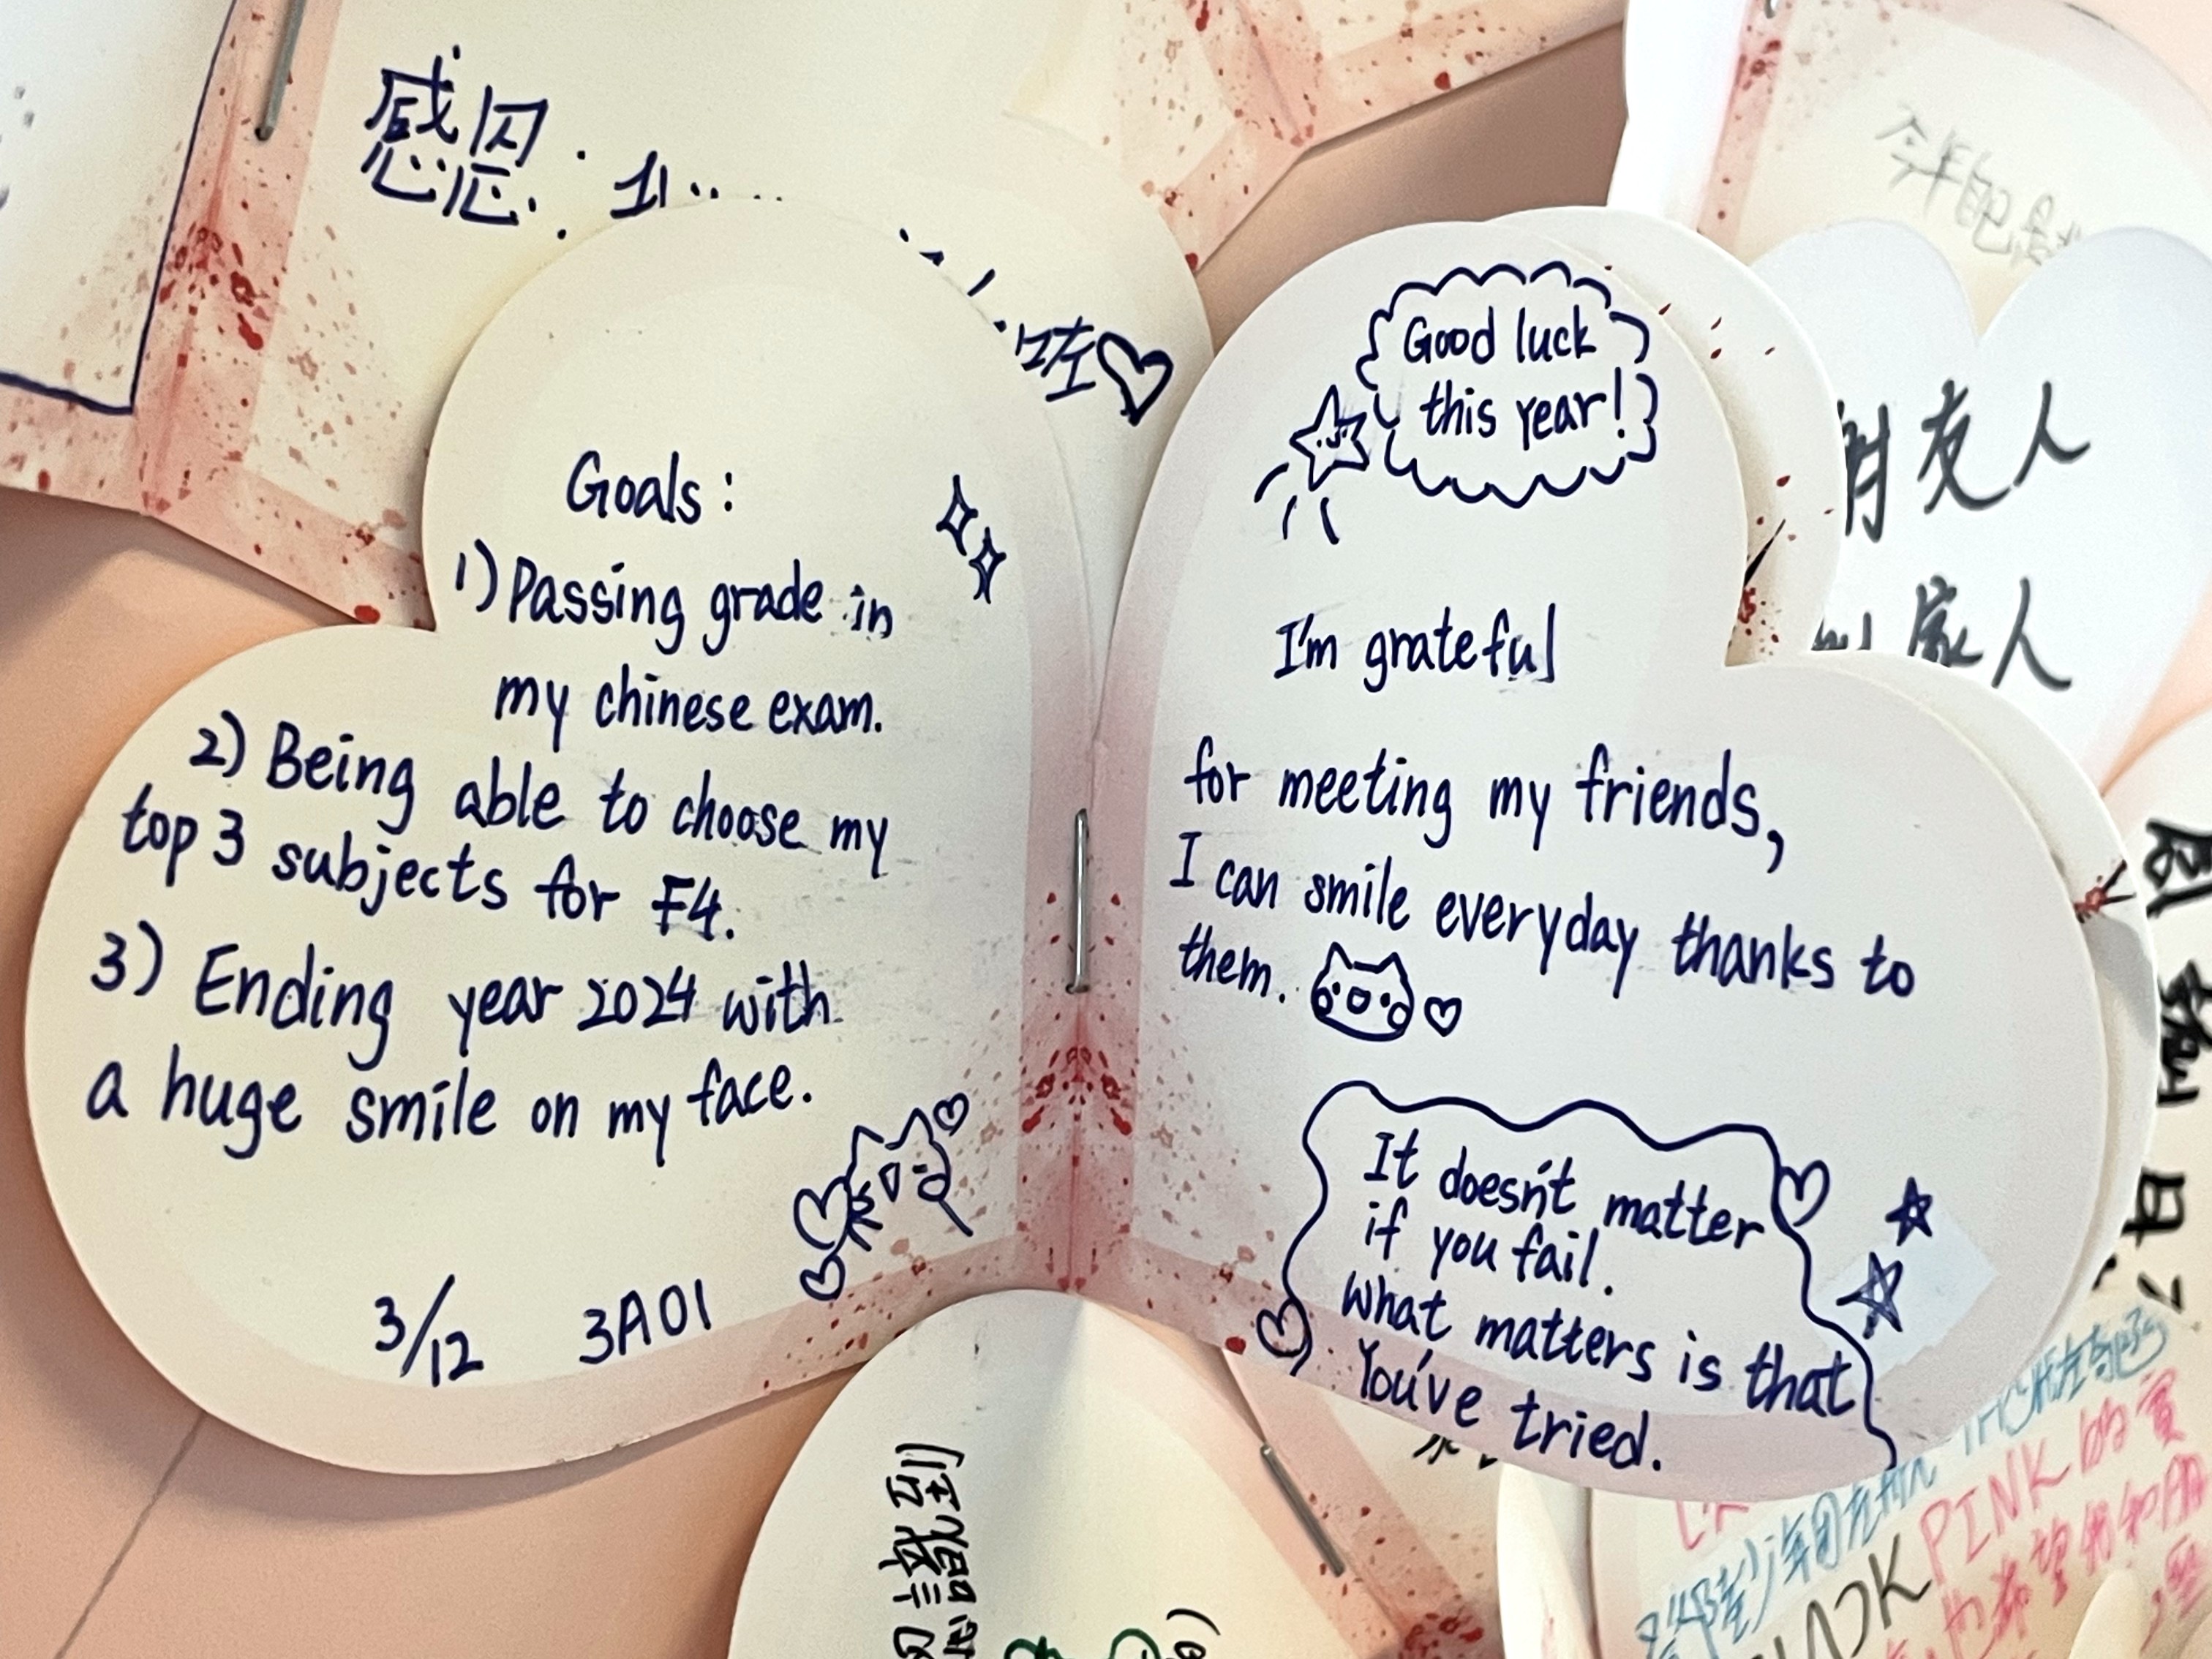 感恩:
Goals:
1) Passing grade in
my chinese exam.
2) Being able to choose my
top 3 subjects for F4.
3) Ending year 2024 with
a huge smile on my face.
3/12 3A01
Good luck
this year!
I'm grateful
for meeting my friends,
I can smile everyday thanks to
them.
It doesn't matter
if you fail.
What matters is that
You've tried.
今年自己是
友人
家人
識到
PINK的
也希望我和朋